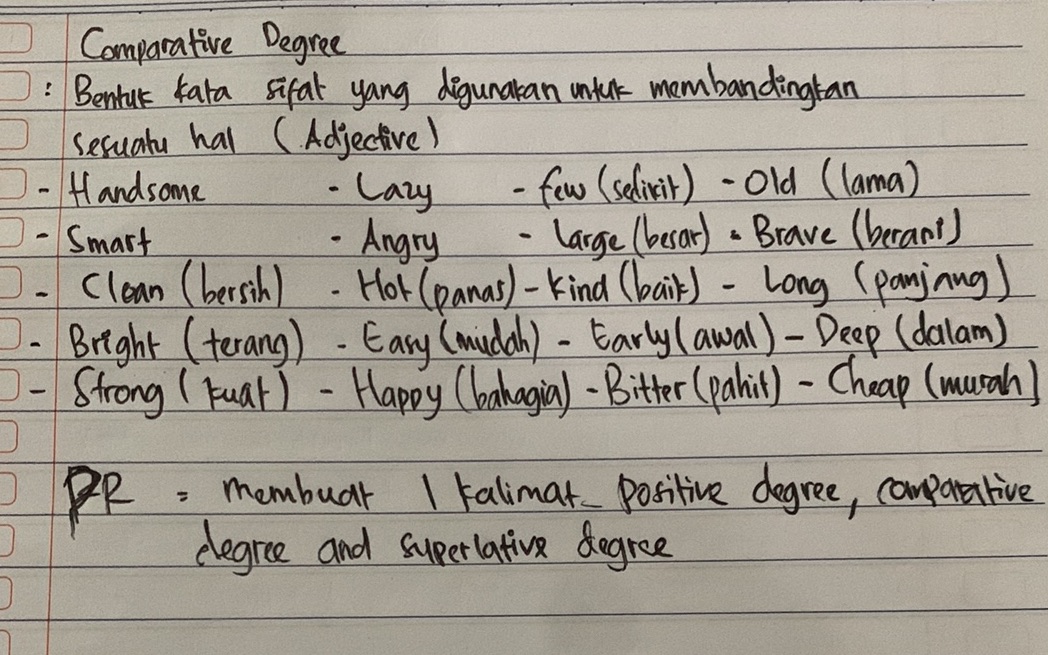 Comparative Degree
: Bentuk kata sifat yang digunakan untuk membandingkan
sesuatu hal (Adjective)
- Handsome - Lazy - few (sedikit) - Old (lama)
- Smart - Angry - Large (besar) - Brave (berani)
- Clean (bersih) - Hot (panas) - Kind (baik) - Long (panjang)
- Bright (terang) - Easy (mudah) - Early (awal) - Deep (dalam)
- Strong (kuat) - Happy (bahagia) - Bitter (pahit) - Cheap (murah)
PR = membuat 1 kalimat positive degree, comparative
degree and superlative degree